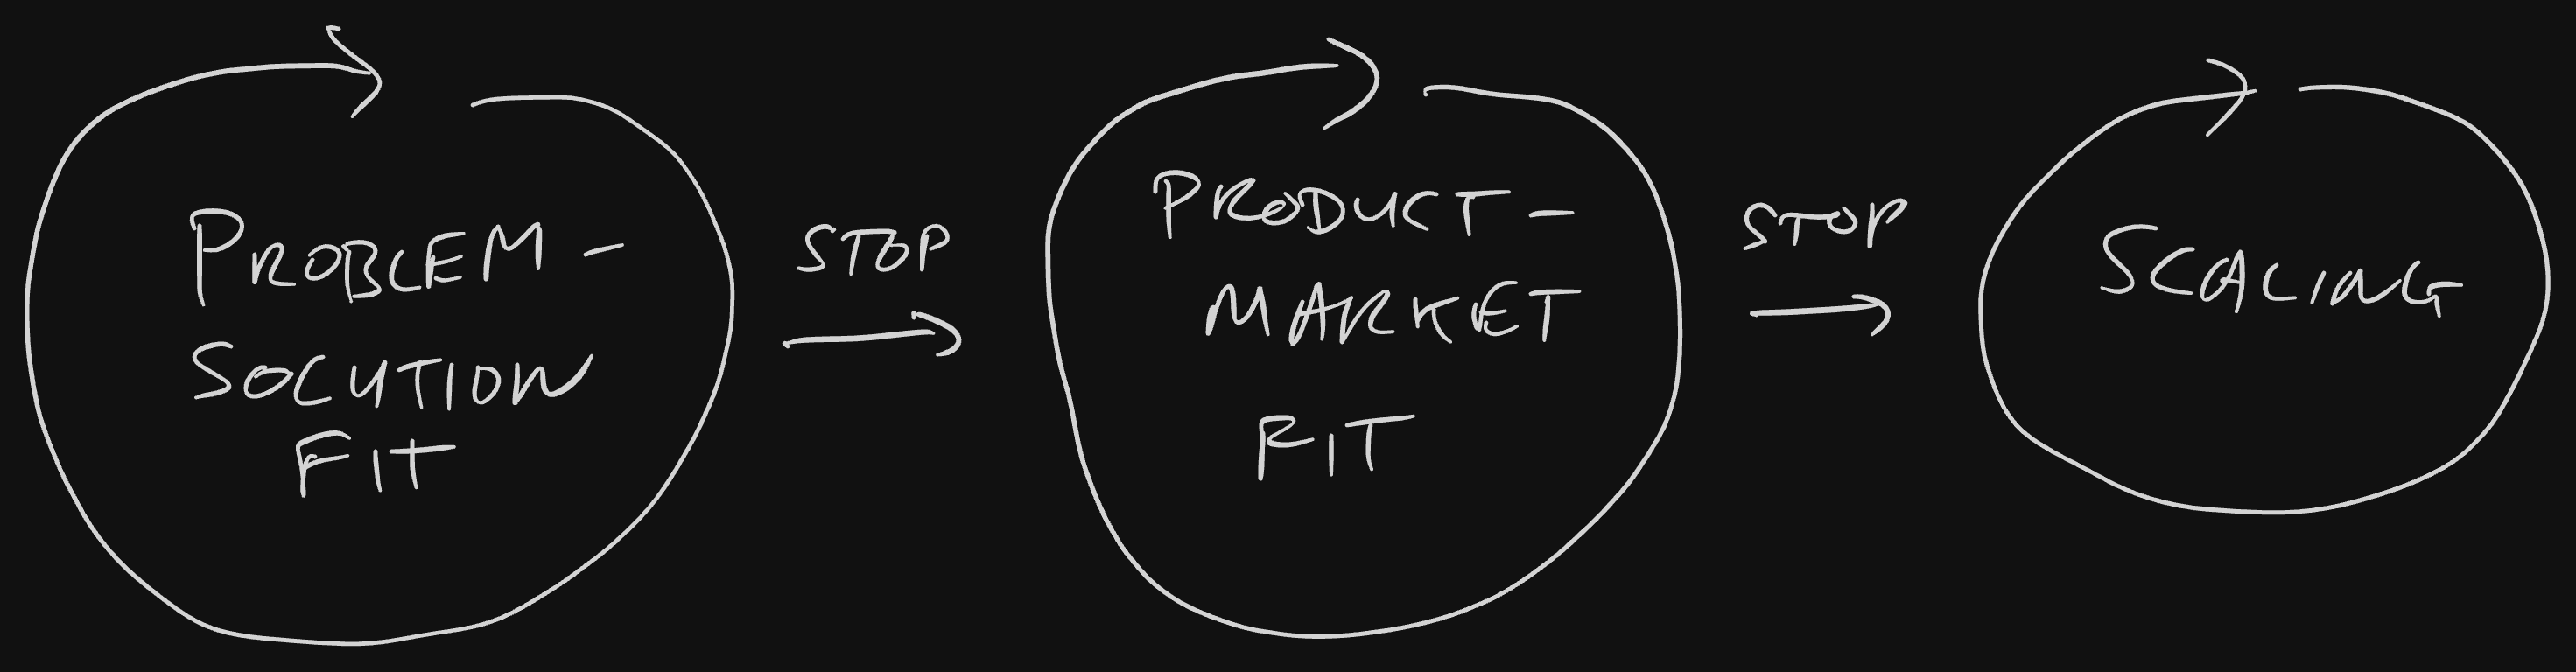 PROBLEM-
SOLUTION
FIT
STOP
PRODUCT-
MARKET
FIT
STOP
SCALING